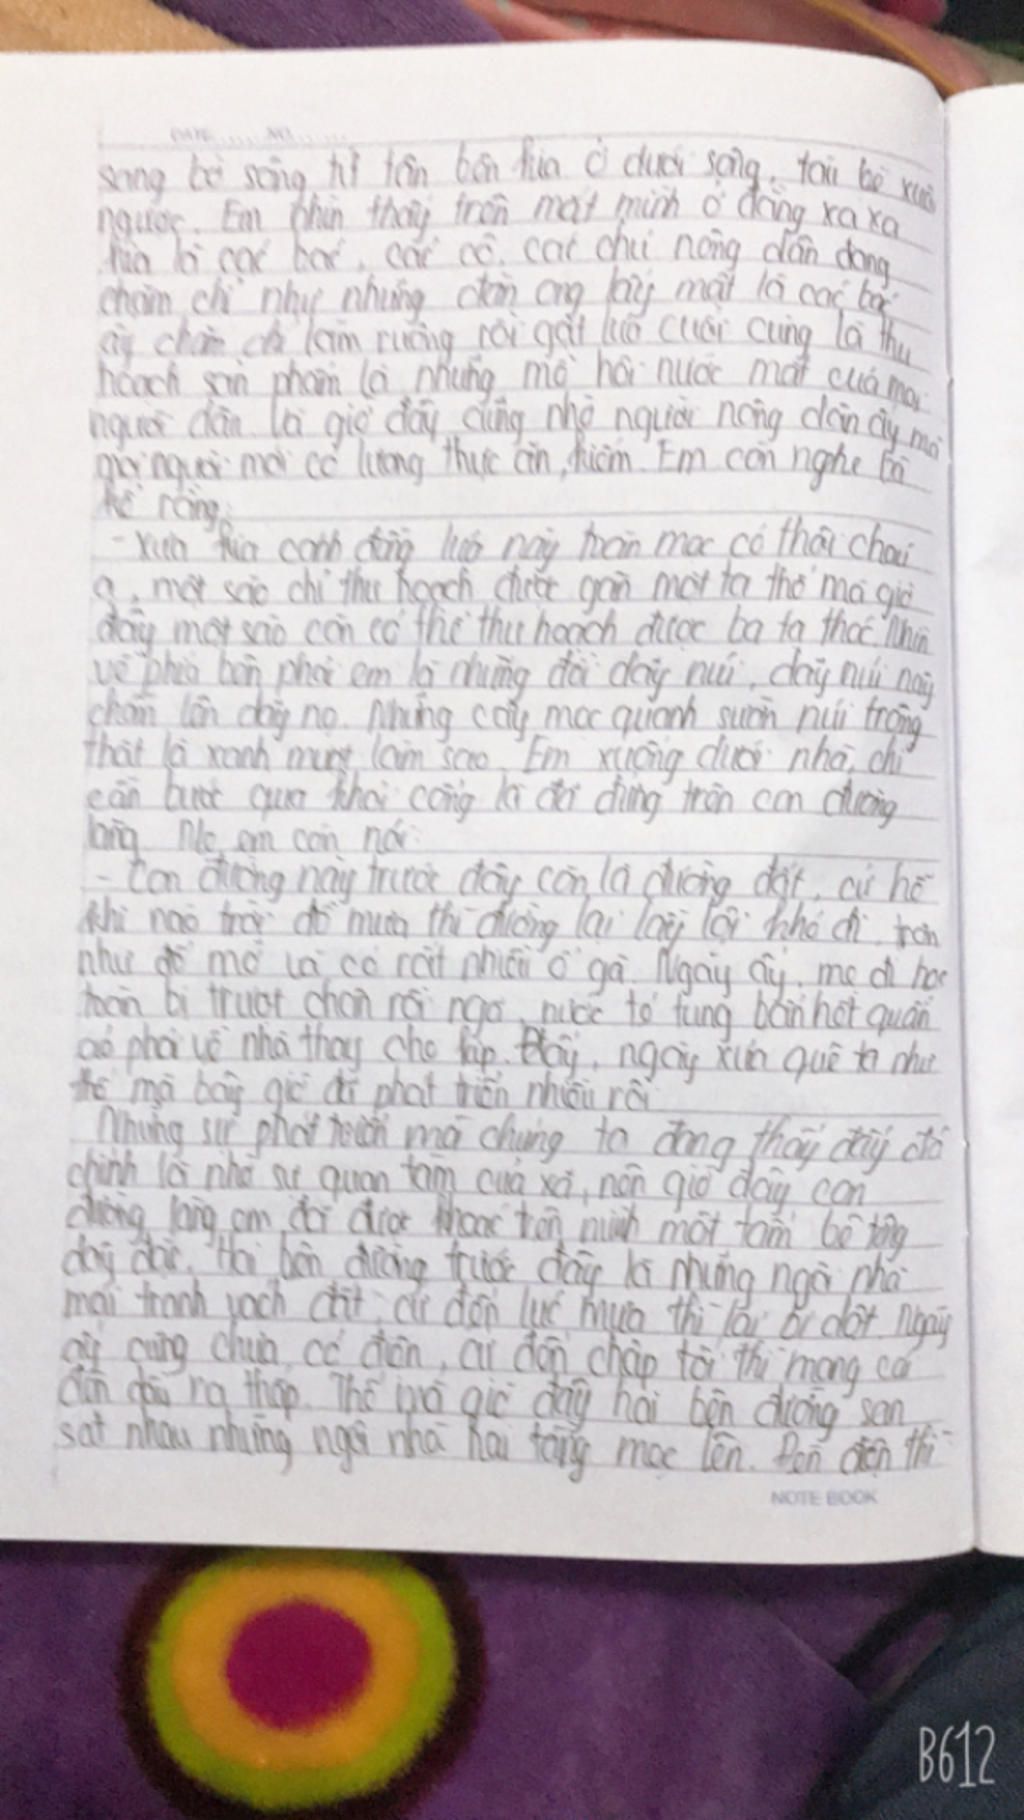 DATE ...... NO ......
sang bờ sông từ tốn bên kia Ở dưới sông, tàu bè xuôi
ngược. Em nhìn thấy trên mặt mình ở đằng xa xa
kia là các bác, các cô, các chú nông dân đang
chăm chỉ như những đàn ong lấy mật là các bác
ấy chăm chỉ làm ruộng rồi gặt lúa cuối cùng là thu
hoạch sản phẩm là những mồ hôi nước mắt của mọi
người dân là giờ đây cũng nhờ người nông dân ấy mà
mọi người mới có lương thực ăn, kiếm. Em còn nghe bà
kể rằng:
- Xưa kia cánh đồng lúa này toàn mọc cỏ thôi cháu
ạ, một sào chỉ thu hoạch được gần một tạ thó mà giờ
đây một sào còn có thể thu hoạch được ba tạ thóc. Nhìn
về phía bên phải em là những đồi dãy núi, dãy núi này
chồm lên dãy nọ. Những cây mọc quanh sườn núi trông
thật là xanh mượt làm sao. Em xuống dưới nhà, chỉ
cần bước qua khỏi cổng là đã đứng trên con đường
làng. Mẹ em còn nói:
- Con đường này trước đây còn là đường đất, cứ hễ
khi nào trời đổ mưa thì đường lại lầy lội khó đi, trơn
như đổ mỡ và có rất nhiều ổ gà. Ngày ấy, mẹ đi học
toàn bị trượt chân rồi ngã, nước té tung bẩn hết quần
áo phải về nhà thay cho kịp. Đấy, ngày xưa quê ta như
thế mà bây giờ đã phát triển nhiều rồi
Những sự phát triển mà chúng ta đang thấy đấy đó
chính là nhờ sự quan tâm của xã, nên giờ đây con
đường làng em đã được khoác trên mình một tấm bê tông
dày đặc. Hai bên đường trước đây là những ngôi nhà
mái tranh vách đất, cứ đến lúc mưa thì lại bị dột. Ngày
ấy cũng chưa có điện, cứ đến chập tối thì mang cái
đèn dầu ra thắp. Thế mà giờ đây hai bên đường san
sát nhau những ngôi nhà hai tầng mọc lên. Đèn điện thì
NOTE BOOK
B612